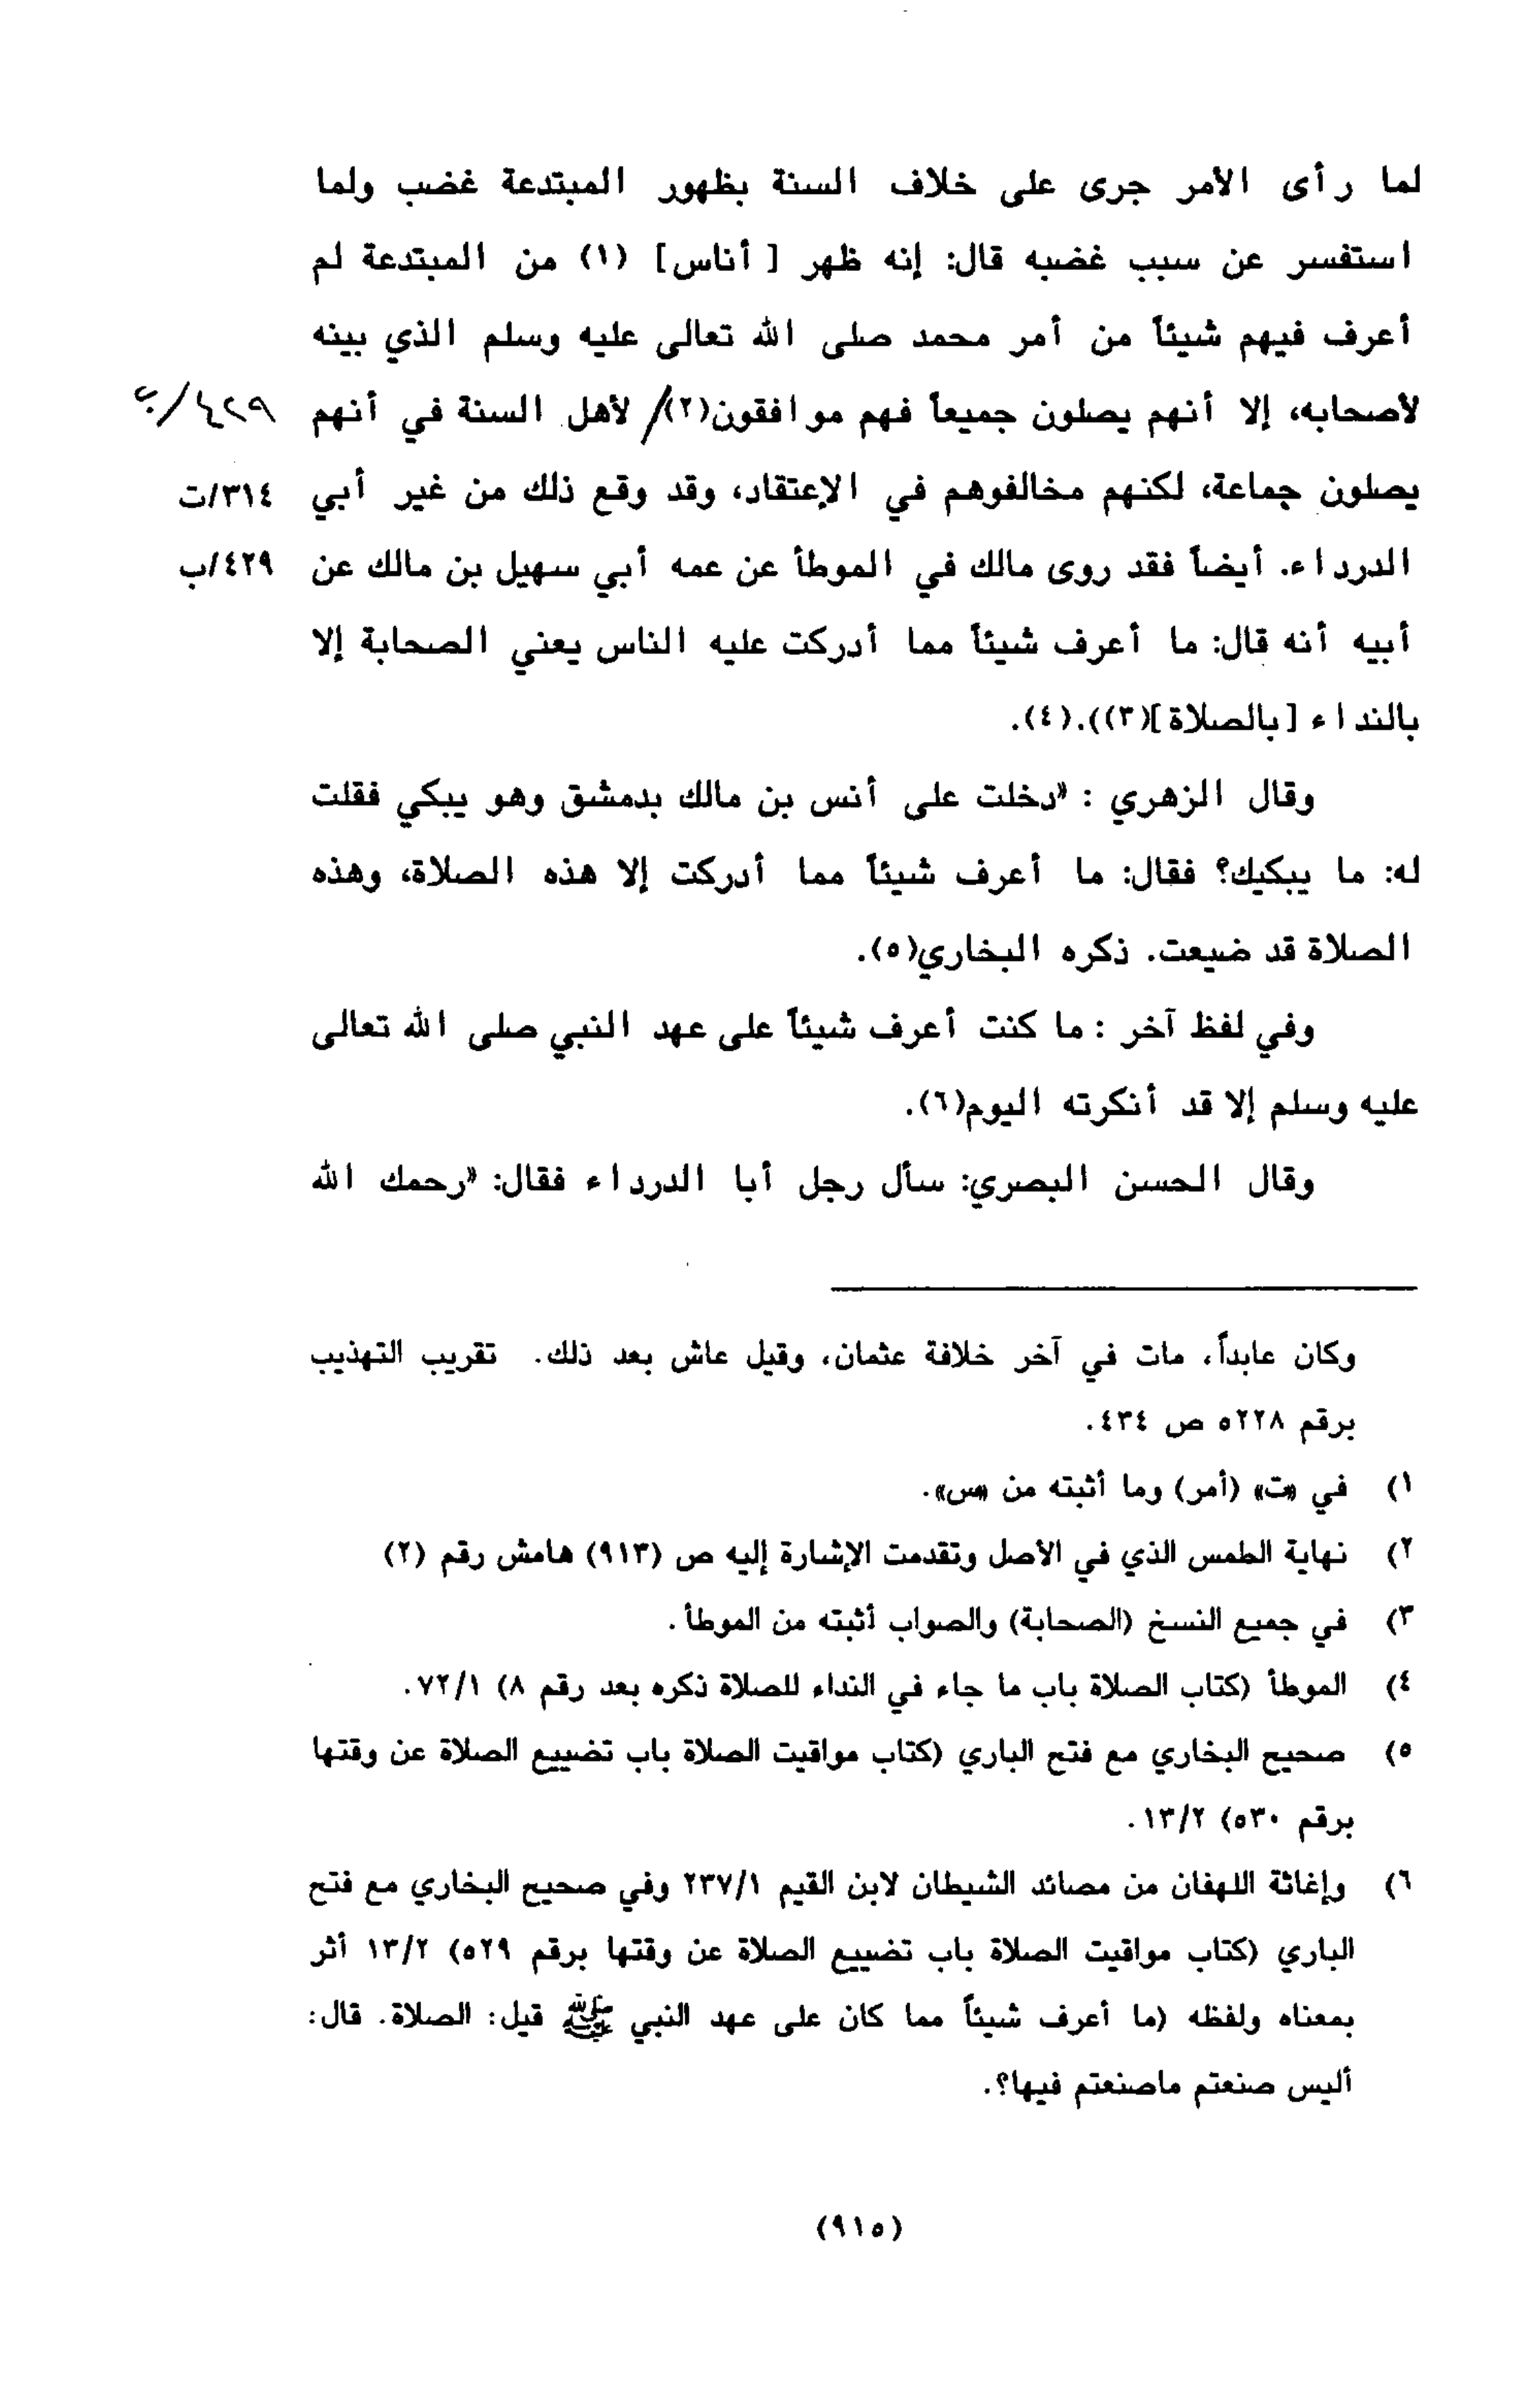 لما رأى الأمر جرى على خلاف السنة بظهور المبتدعة غضب ولما
استفسر عن سبب غضبه قال: إنه ظهر [أناس] (١) من المبتدعة لم
أعرف فيهم شيئاً من أمر محمد صلى الله تعالى عليه وسلم الذي بينه
لأصحابه، إلا أنهم يصلون جميعاً فهم موافقون(٢)/ لأهل السنة في أنهم ٤٢٩/ب
يصلون جماعة، لكنهم مخالفوهم في الإعتقاد، وقد وقع ذلك من غير أبي ٣١٤/ت
الدرداء. أيضاً فقد روى مالك في الموطأ عن عمه أبي سهيل بن مالك عن ٤٢٩/ب
أبيه أنه قال: ما أعرف شيئاً مما أدركت عليه الناس يعني الصحابة إلا
بالنداء [بالصلاة](٣)).(٤).
وقال الزهري : «دخلت على أنس بن مالك بدمشق وهو يبكي فقلت
له: ما يبكيك؟ فقال: ما أعرف شيئاً مما أدركت إلا هذه الصلاة، وهذه
الصلاة قد ضيعت. ذكره البخاري(٥).
وفي لفظ آخر : ما كنت أعرف شيئاً على عهد النبي صلى الله تعالى
عليه وسلم إلا قد أنكرته اليوم(٦).
وقال الحسن البصري: سأل رجل أبا الدرداء فقال: «رحمك الله
وكان عابداً، مات في آخر خلافة عثمان، وقيل عاش بعد ذلك. تقريب التهذيب
برقم ٥٢٢٨ ص ٤٣٤.
١) في «ت» (أمر) وما أثبته من «س».
٢) نهاية الطمس الذي في الأصل وتقدمت الإشارة إليه ص (٩١٣) هامش رقم (٢)
٣) في جميع النسخ (الصحابة) والصواب أثبته من الموطأ.
٤) الموطأ (كتاب الصلاة باب ما جاء في النداء للصلاة ذكره بعد رقم ٨) ٧٢/١.
٥) صحيح البخاري مع فتح الباري (كتاب مواقيت الصلاة باب تضييع الصلاة عن وقتها
برقم ٥٣٠) ١٣/٢.
٦) وإغاثة اللهفان من مصائد الشيطان لابن القيم ٢٣٧/١ وفي صحيح البخاري مع فتح
الباري (كتاب مواقيت الصلاة باب تضييع الصلاة عن وقتها برقم ٥٢٩) ١٣/٢ أثر
بمعناه ولفظه (ما أعرف شيئاً مما كان على عهد النبي ﷺ قيل: الصلاة. قال:
أليس صنعتم ماصنعتم فيها؟.
(٩١٥)